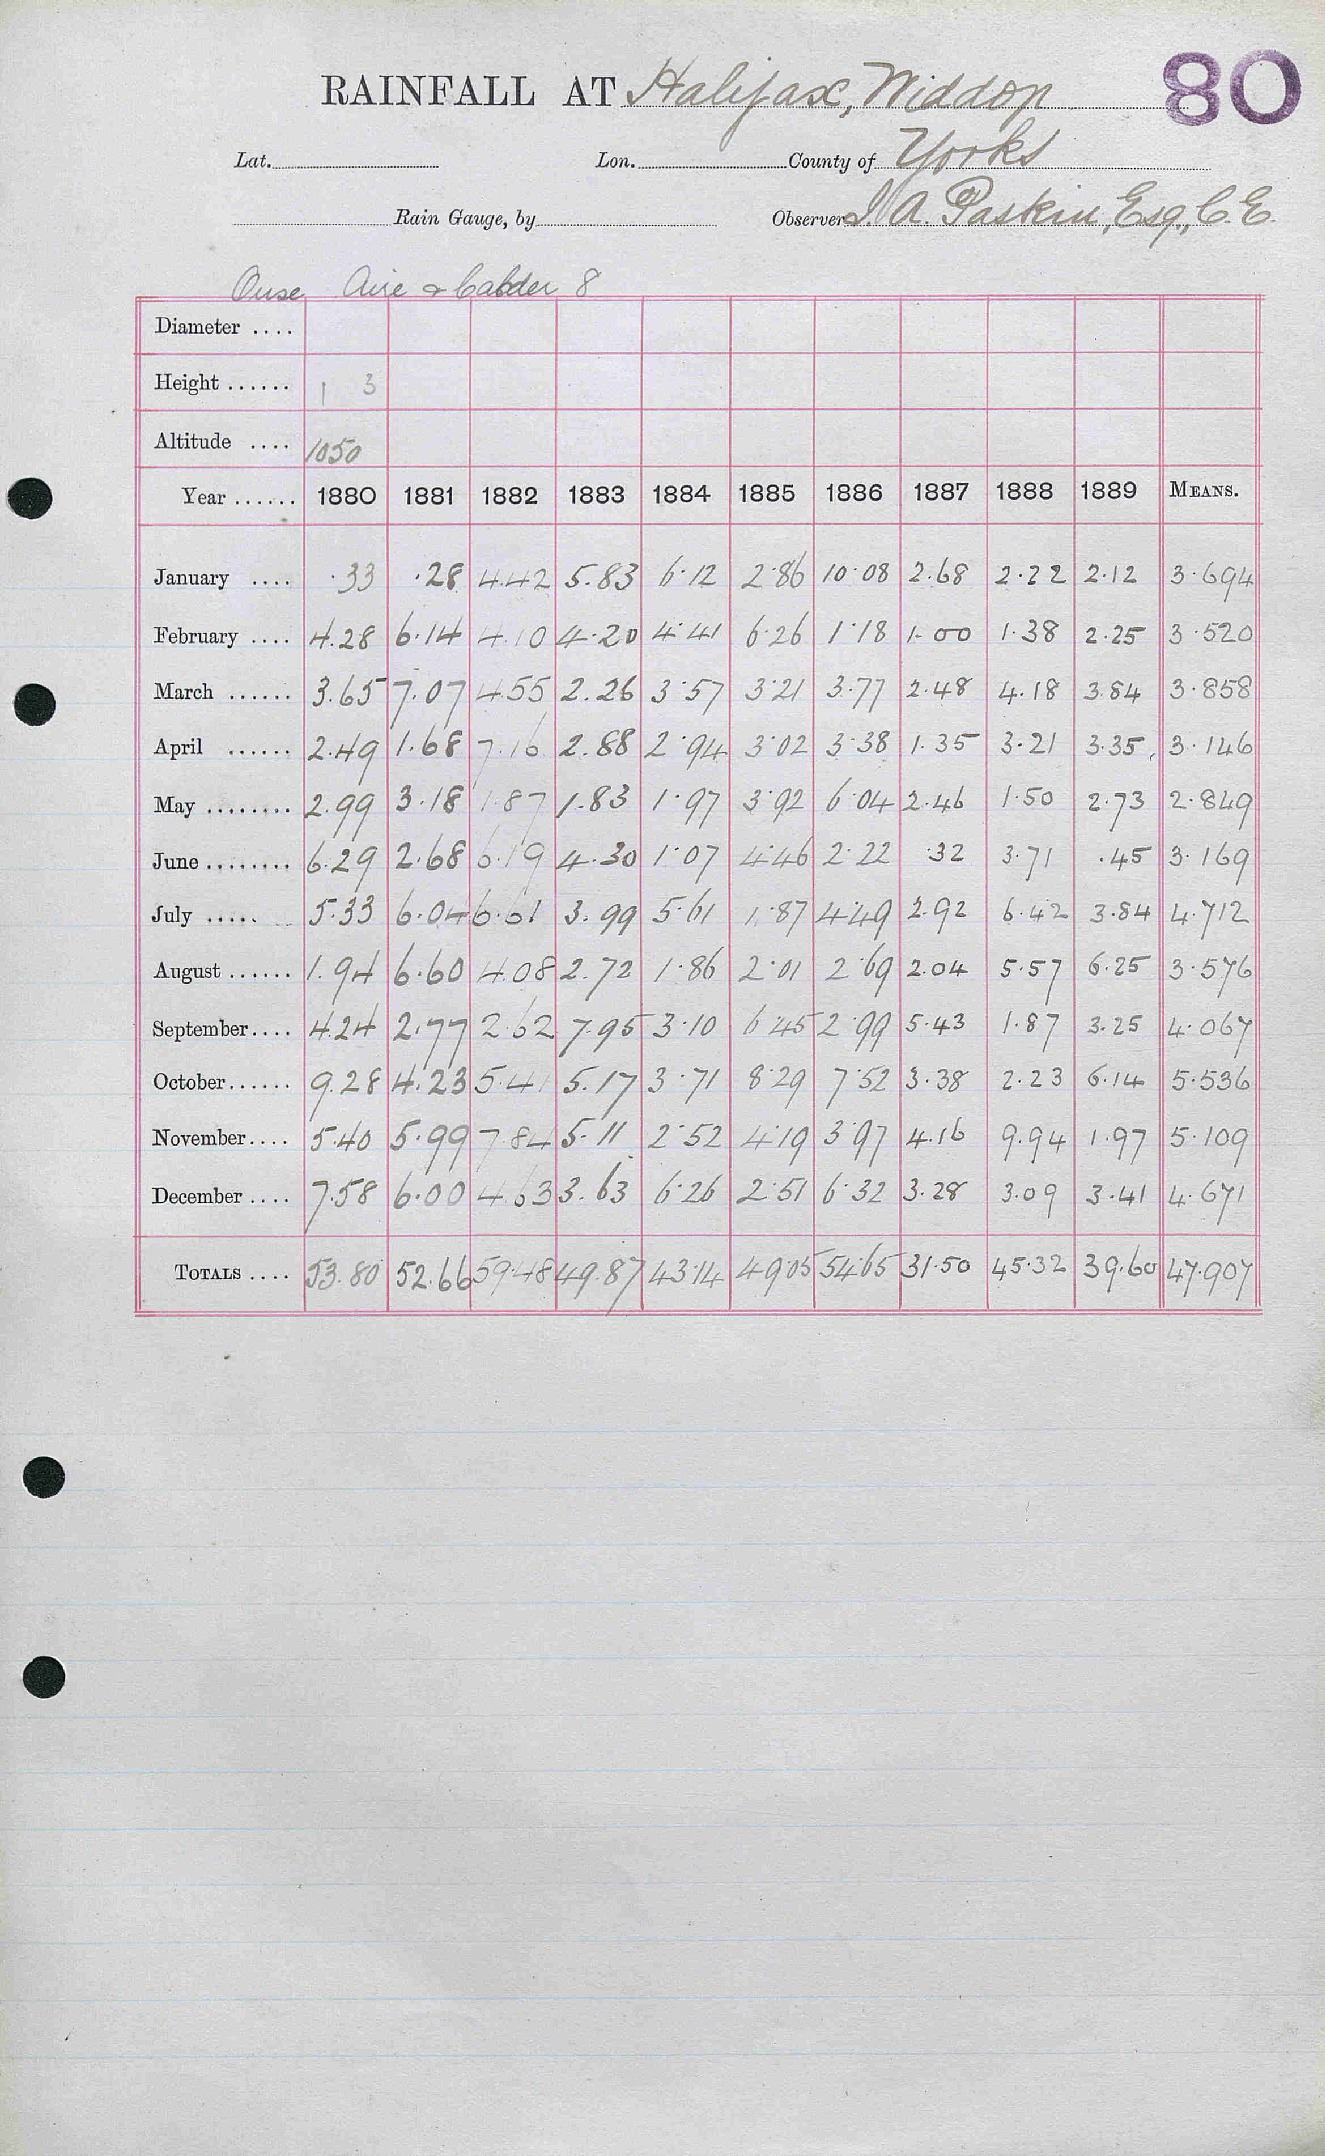 80
RAINFALL AT Halifax, Widdop
Lat. Lon. County of Yorks
Rain Gauge, by Observer J. A. Paskin, Esq., C.E.
Ouse Aire & Calder 8
Diameter ....
Height ...... 1 3
Altitude .... 1050
Year ...... 1880 1881 1882 1883 1884 1885 1886 1887 1888 1889 MEANS.
January .... .33 .28 4.42 5.83 6.12 2.86 10.08 2.68 2.22 2.12 3.694
February .... 4.28 6.14 4.10 4.20 4.41 6.26 1.18 1.00 1.38 2.25 3.520
March ...... 3.65 7.07 4.55 2.26 3.57 3.21 3.77 2.48 4.18 3.84 3.858
April ...... 2.49 1.68 7.16 2.88 2.94 3.02 3.38 1.35 3.21 3.35 3.146
May ........ 2.99 3.18 1.87 1.83 1.97 3.92 6.04 2.46 1.50 2.73 2.849
June ........ 6.29 2.68 6.19 4.30 1.07 4.46 2.22 .32 3.71 .45 3.169
July ..... 5.33 6.04 6.61 3.99 5.61 1.87 4.49 2.92 6.42 3.84 4.712
August ...... 1.94 6.60 4.08 2.72 1.86 2.01 2.69 2.04 5.57 6.25 3.576
September.... 4.24 2.77 2.62 7.95 3.10 6.45 2.99 5.43 1.87 3.25 4.067
October...... 9.28 4.23 5.41 5.17 3.71 8.29 7.52 3.38 2.23 6.14 5.536
November.... 5.40 5.99 7.84 5.11 2.52 4.19 3.97 4.16 9.94 1.97 5.109
December .... 7.58 6.00 4.63 3.63 6.26 2.51 6.32 3.28 3.09 3.41 4.671
TOTALS .... 53.80 52.66 59.48 49.87 43.14 49.05 54.65 31.50 45.32 39.60 47.907